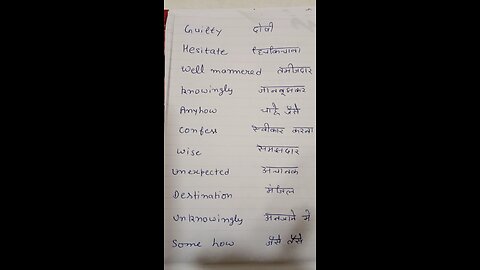 Guilty दोषी
Hesitate हिचकिचाना
Well mannered तमीजदार
Knowingly जानबूझकर
Anyhow चाहे जैसे
Confess स्वीकार करना
Wise समझदार
Unexpected अचानक
Destination मंजिल
Unknowingly अनजाने मे
Some how जैसे तैसे